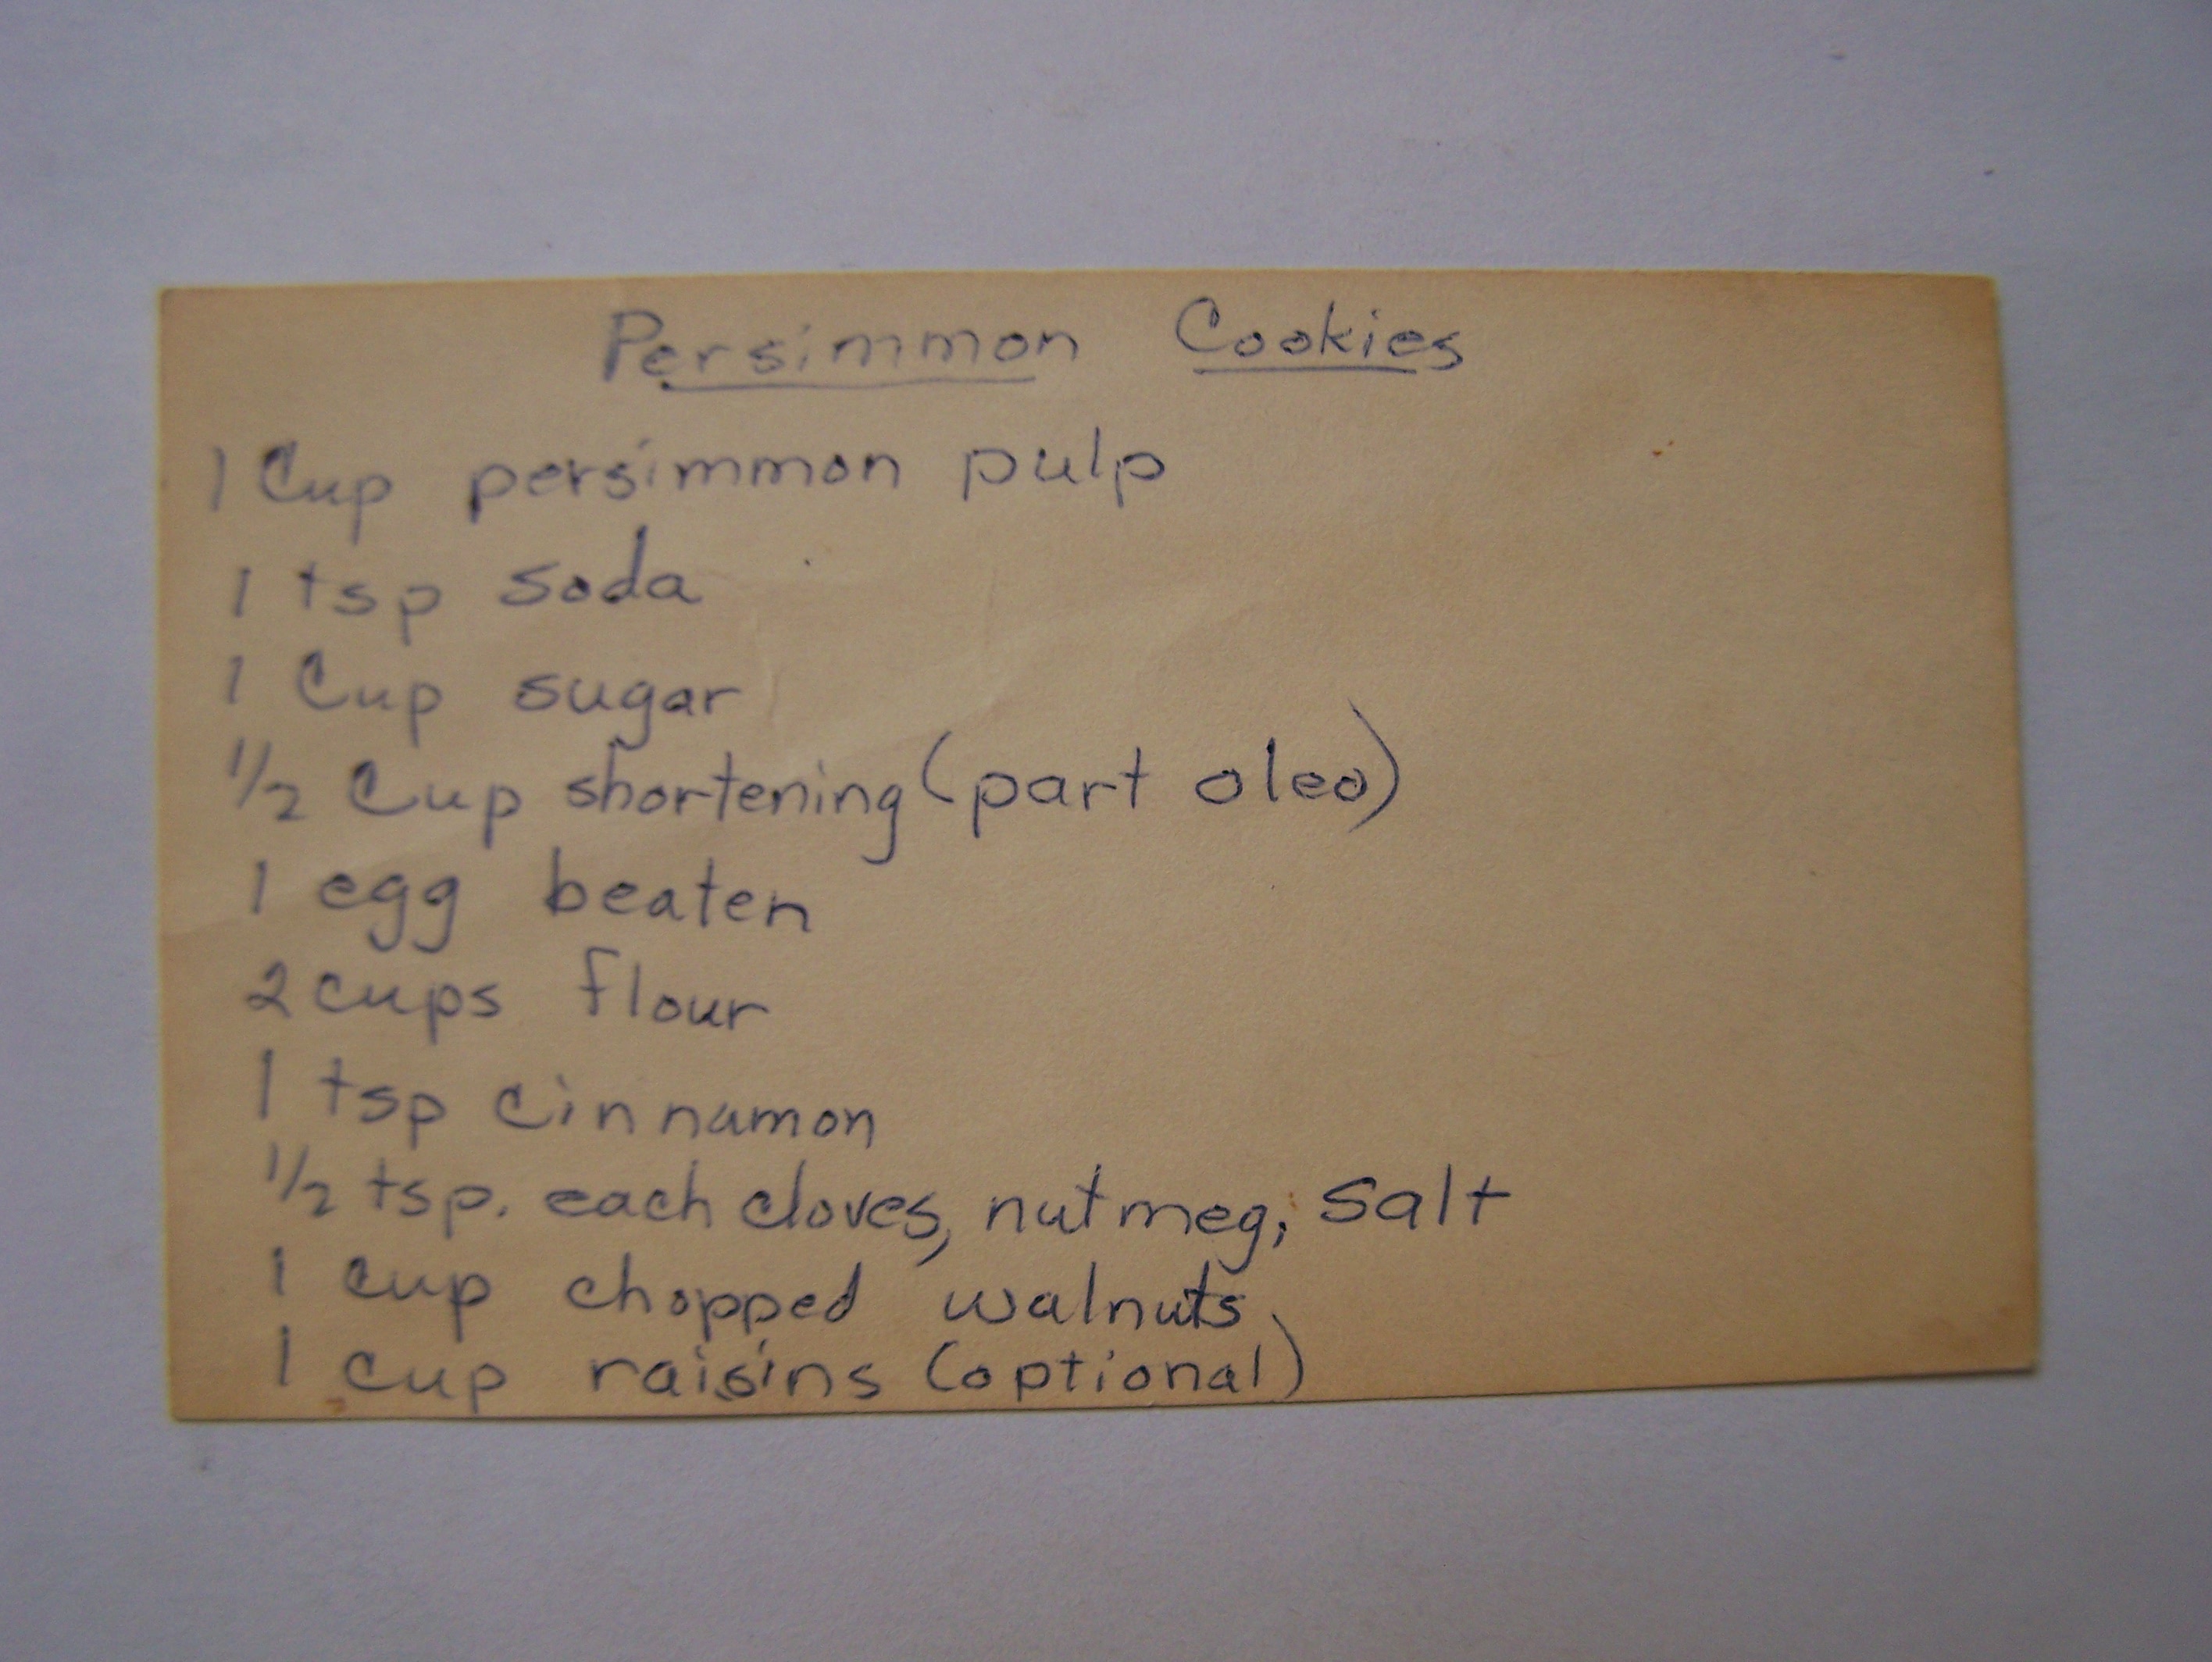 Persimmon Cookies
1 Cup persimmon pulp
1 tsp soda
1 Cup sugar
1/2 Cup shortening (part oleo)
1 egg beaten
2 cups flour
1 tsp cinnamon
1/2 tsp. each cloves, nutmeg, salt
1 cup chopped walnuts
1 cup raisins (optional)